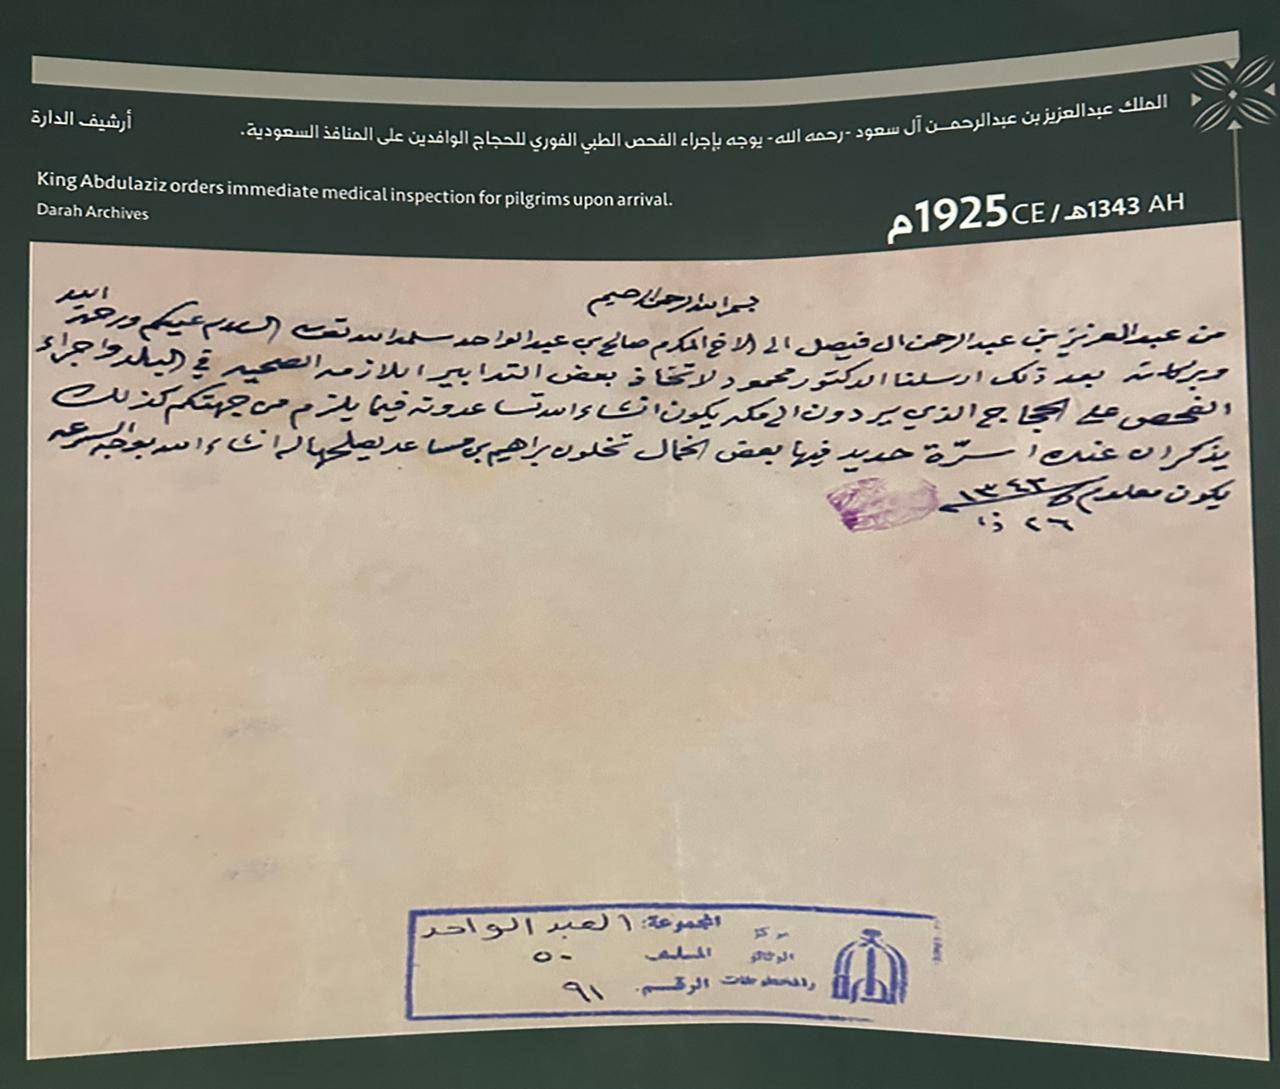 الملك عبدالعزيز بن عبدالرحمـــن آل سعود -رحمه الله- يوجه بإجراء الفحص الطبي الفوري للحجاج الوافدين على المنافذ السعودية.
أرشيف الدارة
King Abdulaziz orders immediate medical inspection for pilgrims upon arrival.
Darah Archives
1925م CE / 1343هـ AH
بسم الله الرحمن الرحيم
من عبد العزيز بن عبد الرحمن ال فيصل الى الاخ المكرم صالح بن عبد الواحد سلمه الله تعالى السلام عليكم ورحمة الله
وبركاته بعد ذلك ارسلنا الدكتور محمود لاتخاذ بعض التدابير اللازمه الصحيه في البلد واجراء
الفحص على الحجاج الذي يردون الى مكه يكون انشاء الله تساعدونه فيما يلزم من جهتكم كذلك
يذكر ان عندك اسرّة حديد فيها بعض الخمال تخلون براهيم بن مساعد يصلحها لنا انشاء الله بوجه السرعه
يكون معلوم ١٣٤٣
٢٦ ذا
مركز
الوثائق
والمخطوطات
المجموعة: العبد الواحد
الملف ٥٠
الرقم ٩١